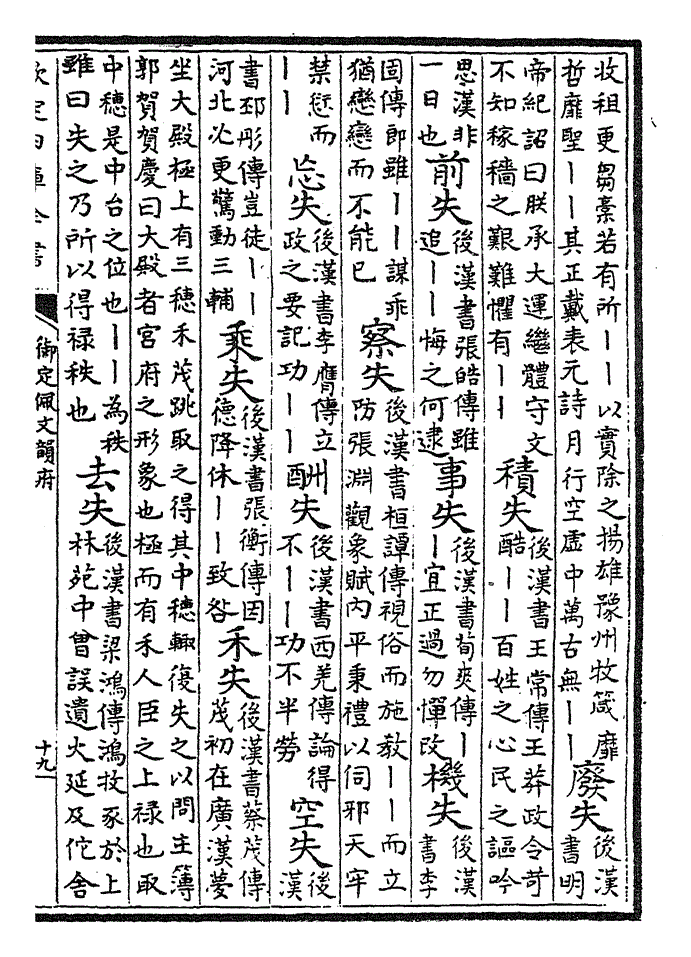 收租更芻槀若有所丨丨以實除之揚雄豫州牧箴靡
哲靡聖丨丨其正戴表元詩月行空虛中萬古無丨丨
廢失
後漢
書明
帝紀詔曰朕承大運繼體守文
不知稼穡之艱難懼有丨丨
積失
後漢書王常傳王莽政令苛
酷丨丨百姓之心民之謳吟
思漢非
一日也
前失
後漢書張皓傳雖
追丨丨悔之何逮
事失
後漢書荀爽傳丨
丨宜正過勿憚改
機失
後漢
書李
固傳即雖丨丨謀乖
猶戀戀而不能已
察失
後漢書桓譚傳視俗而施教丨丨而立
防張淵觀象賦內平秉禮以伺邪天牢
禁愆而
丨丨
忘失
後漢書李膺傳立
政之要記功丨丨
酬失
後漢書西羌傳論得
不丨丨功不半勞
空失
後
漢
書邳彤傳豈徒丨丨
河北必更驚動三輔
乘失
後漢書張衡傳因
德降休丨丨致咎
禾失
後漢書蔡茂傳
茂初在廣漢夢
坐大殿極上有三穗禾茂跳取之得其中穗輒復失之以問主簿
郭賀賀慶曰大殿者宮府之形象也極而有禾人臣之上祿也取
中穗是中台之位也丨丨為秩
雖曰失之乃所以得祿秩也
去失
後漢書梁鴻傳鴻牧豕於上
林苑中曾誤遺火延及佗舍
欽定四庫全書
御定佩文韻府
十九